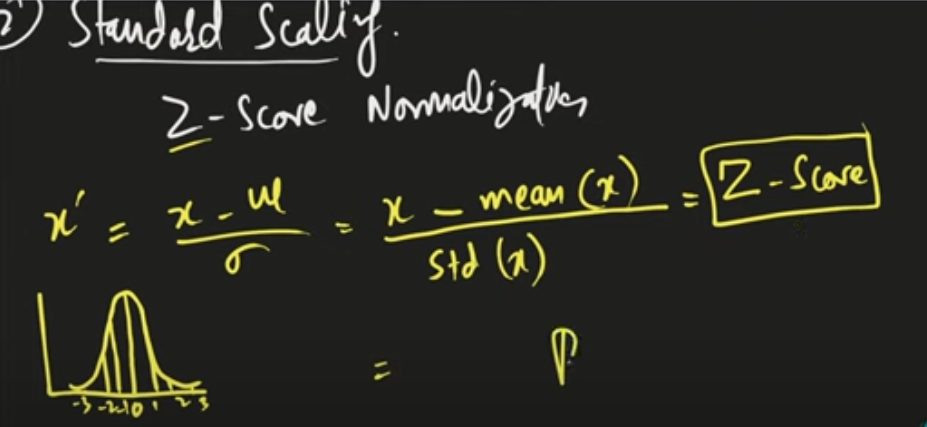 2) Standard Scaling.
Z-Score Normalization
x' = x - μ / σ = x - mean(x) / std(x) = Z-Score
-3 -2 -1 0 1 2 3
=